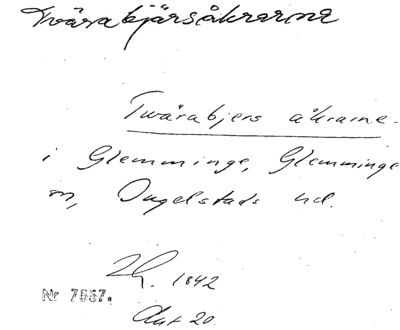 Tvärabjärsåkrarna
Twärabjers åkrarne
i Glemminge, Glemminge
sn, Ingelstads hd.
1842
Nr 7557.
Akt 20